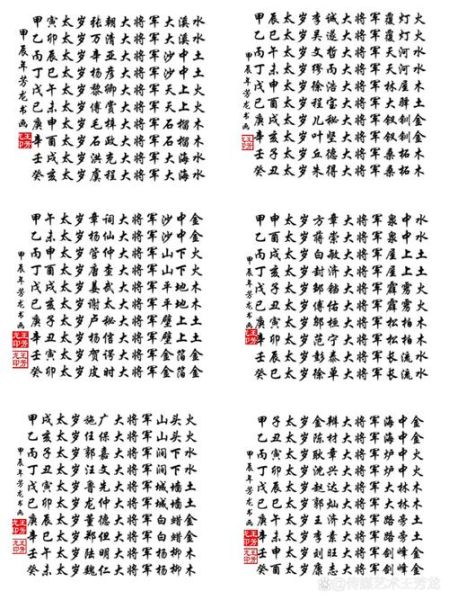 甲寅太岁张朝大将军大溪水
乙卯太岁万清大将军大溪水
丙辰太岁辛亚大将军沙中土
丁巳太岁杨彦大将军沙中土
戊午太岁黎卿大将军天上火
己未太岁傅赏大将军天上火
庚申太岁毛梓大将军石榴木
辛酉太岁石政大将军石榴木
壬戌太岁洪克大将军大海水
癸亥太岁虞程大将军大海水
甲辰年芳龙书画
甲辰太岁李诚大将军覆灯火
乙巳太岁吴遂大将军覆灯火
丙午太岁文哲大将军天河水
丁未太岁缪丙大将军天河水
戊申太岁徐浩大将军大驿土
己酉太岁程宝大将军大驿土
庚戌太岁儿秘大将军钗钏金
辛亥太岁叶坚大将军钗钏金
壬子太岁丘德大将军桑柘木
癸丑太岁朱得大将军桑柘木
甲辰年芳龙书画
甲午太岁章词大将军沙中金
乙未太岁杨仙大将军沙中金
丙申太岁管仲大将军山下火
丁酉太岁唐查大将军山下火
戊戌太岁姜武大将军平地木
己亥太岁谢太大将军平地木
庚子太岁卢秘大将军壁上土
辛丑太岁杨信大将军壁上土
壬寅太岁贺谔大将军金箔金
癸卯太岁皮时大将军金箔金
甲辰年芳龙书画
甲申太岁方章大将军泉中水
乙酉太岁蒋崇大将军泉中水
丙戌太岁白敏大将军屋上土
丁亥太岁封济大将军屋上土
戊子太岁邹铛大将军霹雳火
己丑太岁傅佑大将军霹雳火
庚寅太岁邬桓大将军松柏木
辛卯太岁范宁大将军松柏木
壬辰太岁彭泰大将军长流水
癸巳太岁徐单大将军长流水
甲辰年芳龙书画
甲戌太岁施广大将军山头火
乙亥太岁任保大将军山头火
丙子太岁郭嘉大将军涧下水
丁丑太岁汪文大将军涧下水
戊寅太岁鲁先大将军城墙土
己卯太岁龙仲大将军城墙土
庚辰太岁董德大将军白蜡金
辛巳太岁郑但大将军白蜡金
壬午太岁陆明大将军杨柳木
癸未太岁魏仁大将军杨柳木
甲辰年芳龙书画
甲子太岁金辨大将军海中金
乙丑太岁陈材大将军海中金
丙寅太岁耿章大将军炉中火
丁卯太岁沈兴大将军炉中火
戊辰太岁赵达大将军大林木
己巳太岁郭灿大将军大林木
庚午太岁王济大将军路旁土
辛未太岁李素大将军路旁土
壬申太岁刘旺大将军剑峰金
癸酉太岁康志大将军剑峰金
甲辰年芳龙书画
@传媒艺术王芳龙